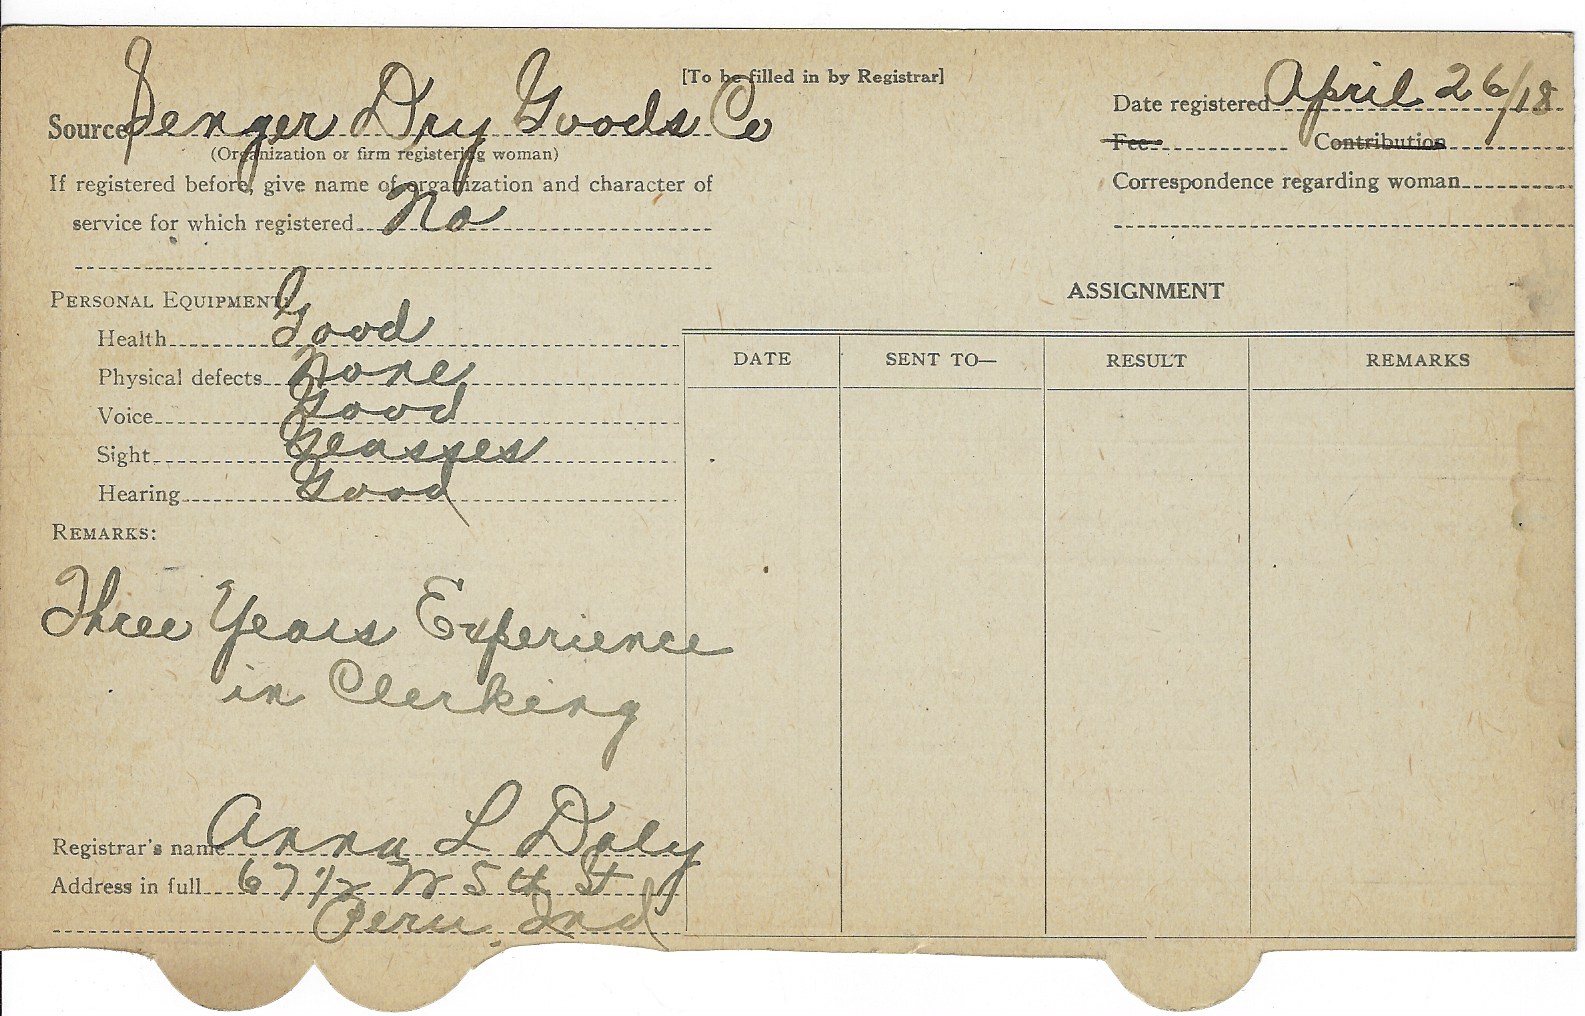 [To be filled in by Registrar]
Source Senger Dry Goods Co
(Organization or firm registering woman)
If registered before, give name of organization and character of
service for which registered No
PERSONAL EQUIPMENT:
Health Good
Physical defects None
Voice Good
Sight Glasses
Hearing Good
REMARKS:
Three Years Experience
in Clerking
Registrar's name Anna L Daly
Address in full 67 1/2 W 5th St
Peru, Ind
Date registered April 26/18
Fee Contribution
Correspondence regarding woman
ASSIGNMENT
DATE SENT TO— RESULT REMARKS